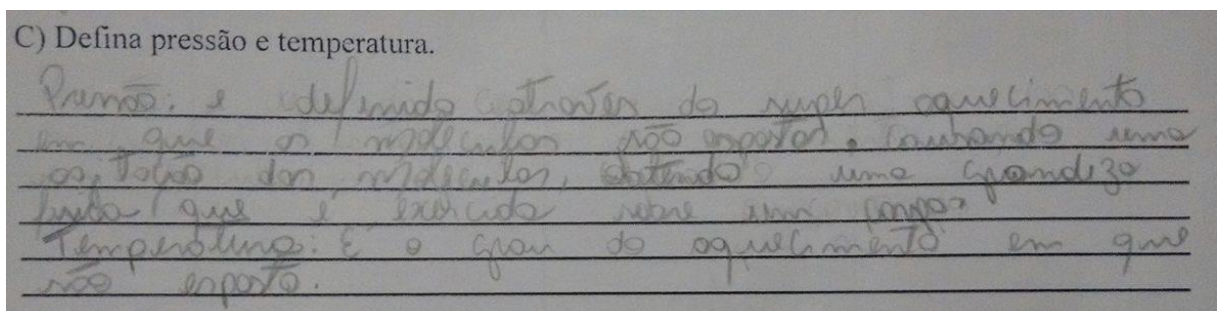 C) Defina pressão e temperatura.
Pressão: e definido através do super aquecimento
em que as moleculas são exposta, causando uma
agitação das moleculas, obtendo uma grandeza
fisica que é exercida sobre um corpo.
Temperatura: É o grau do aquecimento em que
são exposto.